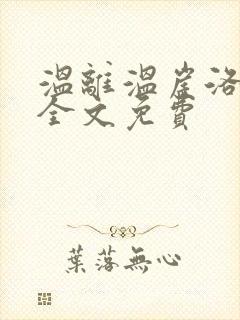 溫離溫崖洛
全文免費
葉落無心